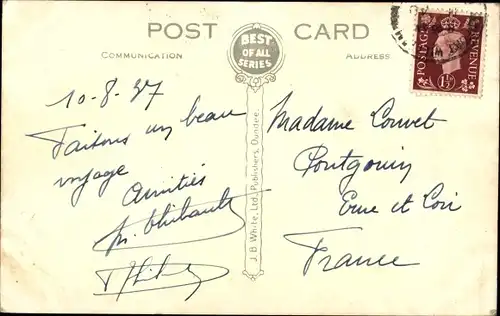 POST CARD
BEST
OF ALL
SERIES
COMMUNICATION
ADDRESS
POSTAGE
REVENUE
1½
J. B. White, Ltd., Publishers, Dundee.
10-8-37
Faisons un beau
voyage
Amitiés
Thibault
Madame Louvet
Pontgouin
Eure et Loir
France